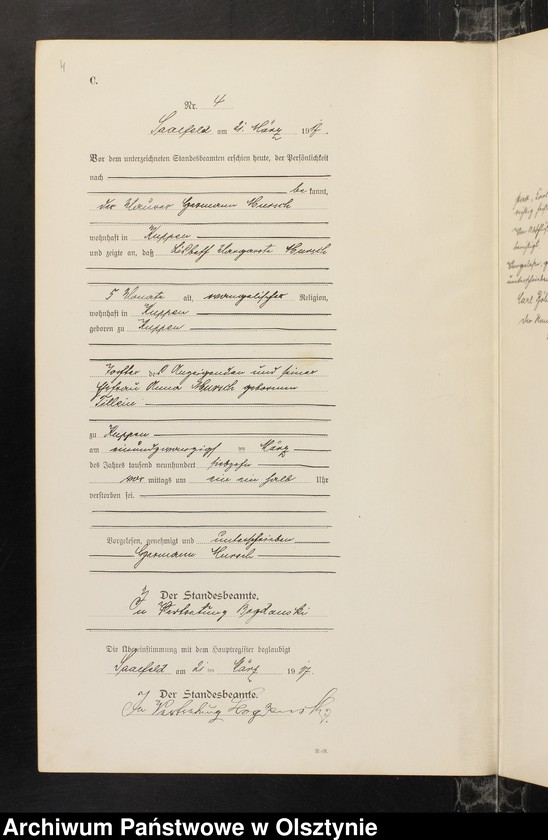 4
C.
Nr. 4
Saalfeld am 21. März 1917.
Vor dem unterzeichneten Standesbeamten erschien heute, der Persönlichkeit
nach
be kannt,
der Hermann
wohnhaft in Kuppen
und zeigte an, daß Lisbeth Margarete
5 Monate alt, evangelischer Religion,
wohnhaft in Kuppen
geboren zu Kuppen
Tochter des Anzeigenden und seiner
Ehefrau Anna geborenen
zu Kuppen
am einundzwanzigsten März
des Jahres tausend neunhundert siebzehn
vor mittags um ein halb Uhr
verstorben sei.
Vorgelesen, genehmigt und unterschrieben
Hermann
Der Standesbeamte.
In Vertretung Bogdanski
Die Übereinstimmung mit dem Hauptregister beglaubigt
Saalfeld am 21. März 1917.
Der Standesbeamte.
In Vertretung Bogdanski
Carl
Archiwum Państwowe w Olsztynie